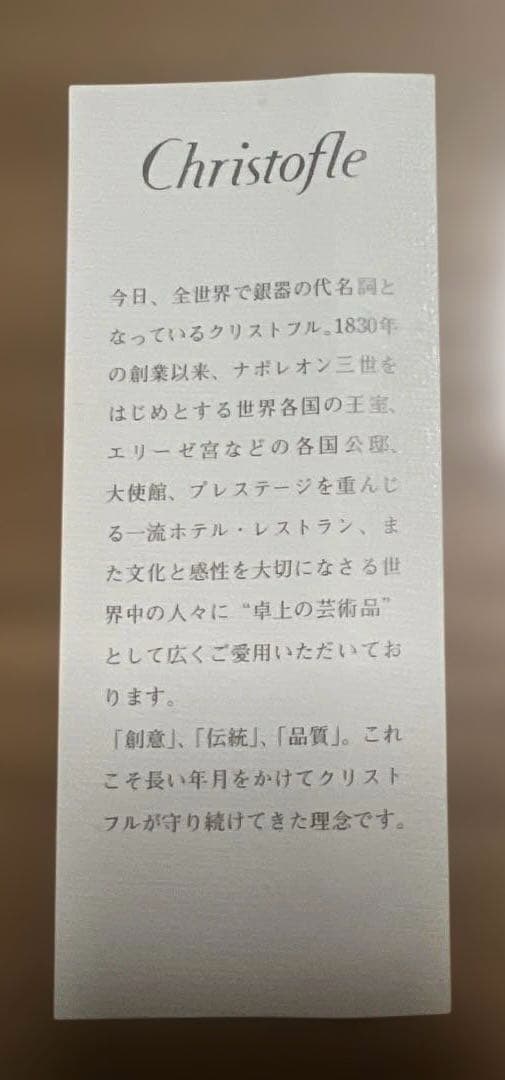 Christofle
今日、全世界で銀器の代名詞と
なっているクリストフル。1830年
の創業以来、ナポレオン三世を
はじめとする世界各国の王室、
エリーゼ宮などの各国公邸、
大使館、プレステージを重んじ
る一流ホテル・レストラン、ま
た文化と感性を大切になさる世
界中の人々に“卓上の芸術品”
として広くご愛用いただいてお
ります。
「創意」、「伝統」、「品質」。これ
こそ長い年月をかけてクリスト
フルが守り続けてきた理念です。